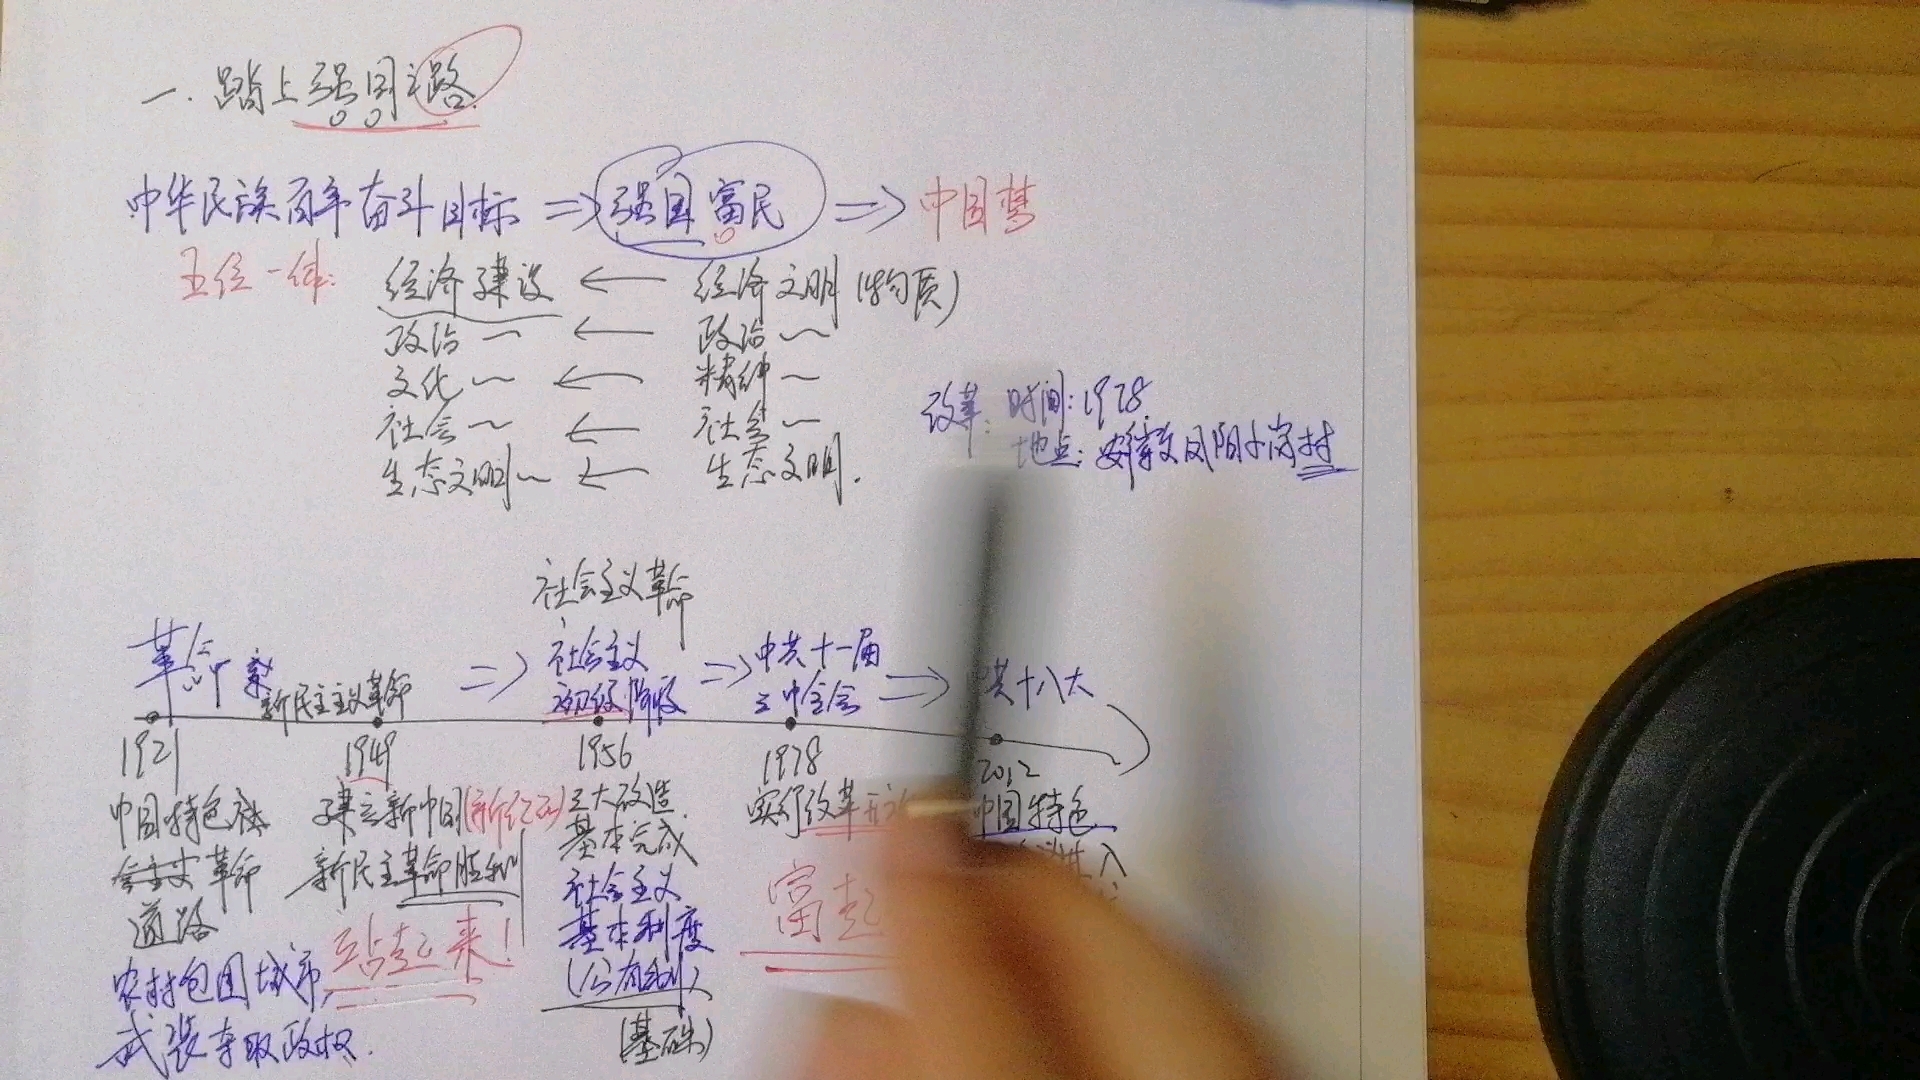 一. 踏上强国之路.
中华民族百年奋斗目标 => 强国富民 => 中国梦
五位一体: 经济建设 ← 经济文明(物质)
政治～ ← 政治～
文化～ ← 精神～
社会～ ← 社会～
生态文明～ ← 生态文明.
改革: 时间:1978.
地点: 安徽凤阳小岗村
社会主义革命
革命 新民主主义革命 => 社会主义初级阶段 => 中共十一届三中全会 => 共十八大
1921 1949 1956 1978 2012
中国特色社会主义革命道路
农村包围城市,
武装夺取政权.
建立新中国(新纪元)
新民主革命胜利
站起来!
三大改造
基本完成
社会主义
基本制度
(公有制)
(基础)
实行改革开
富起
中国特色
进入